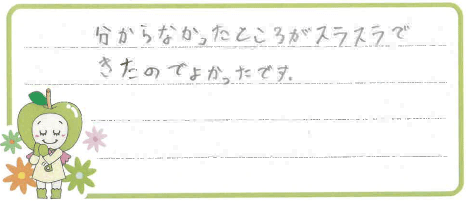 分からなかったところがスラスラで
きたのでよかったです.